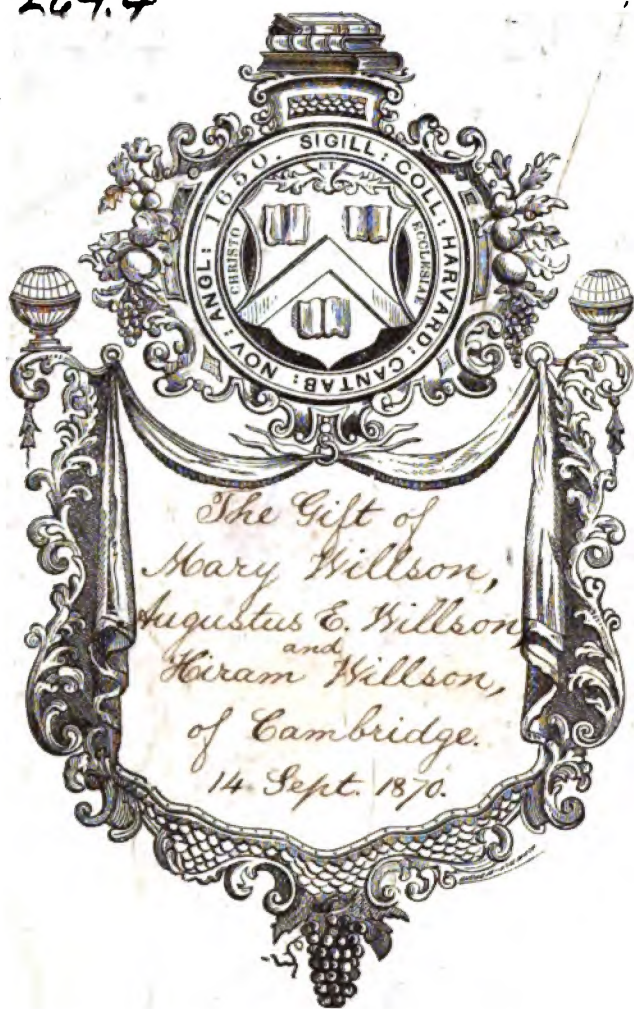 269.4
SIGILL: COLL: HARVARD: CANTAB: NOV: ANGL: 1650.
CHRISTO ET ECCLESIAE
The Gift of
Mary Willson,
Augustus E. Willson,
and
Hiram Willson,
of Cambridge.
14 Sept. 1870.